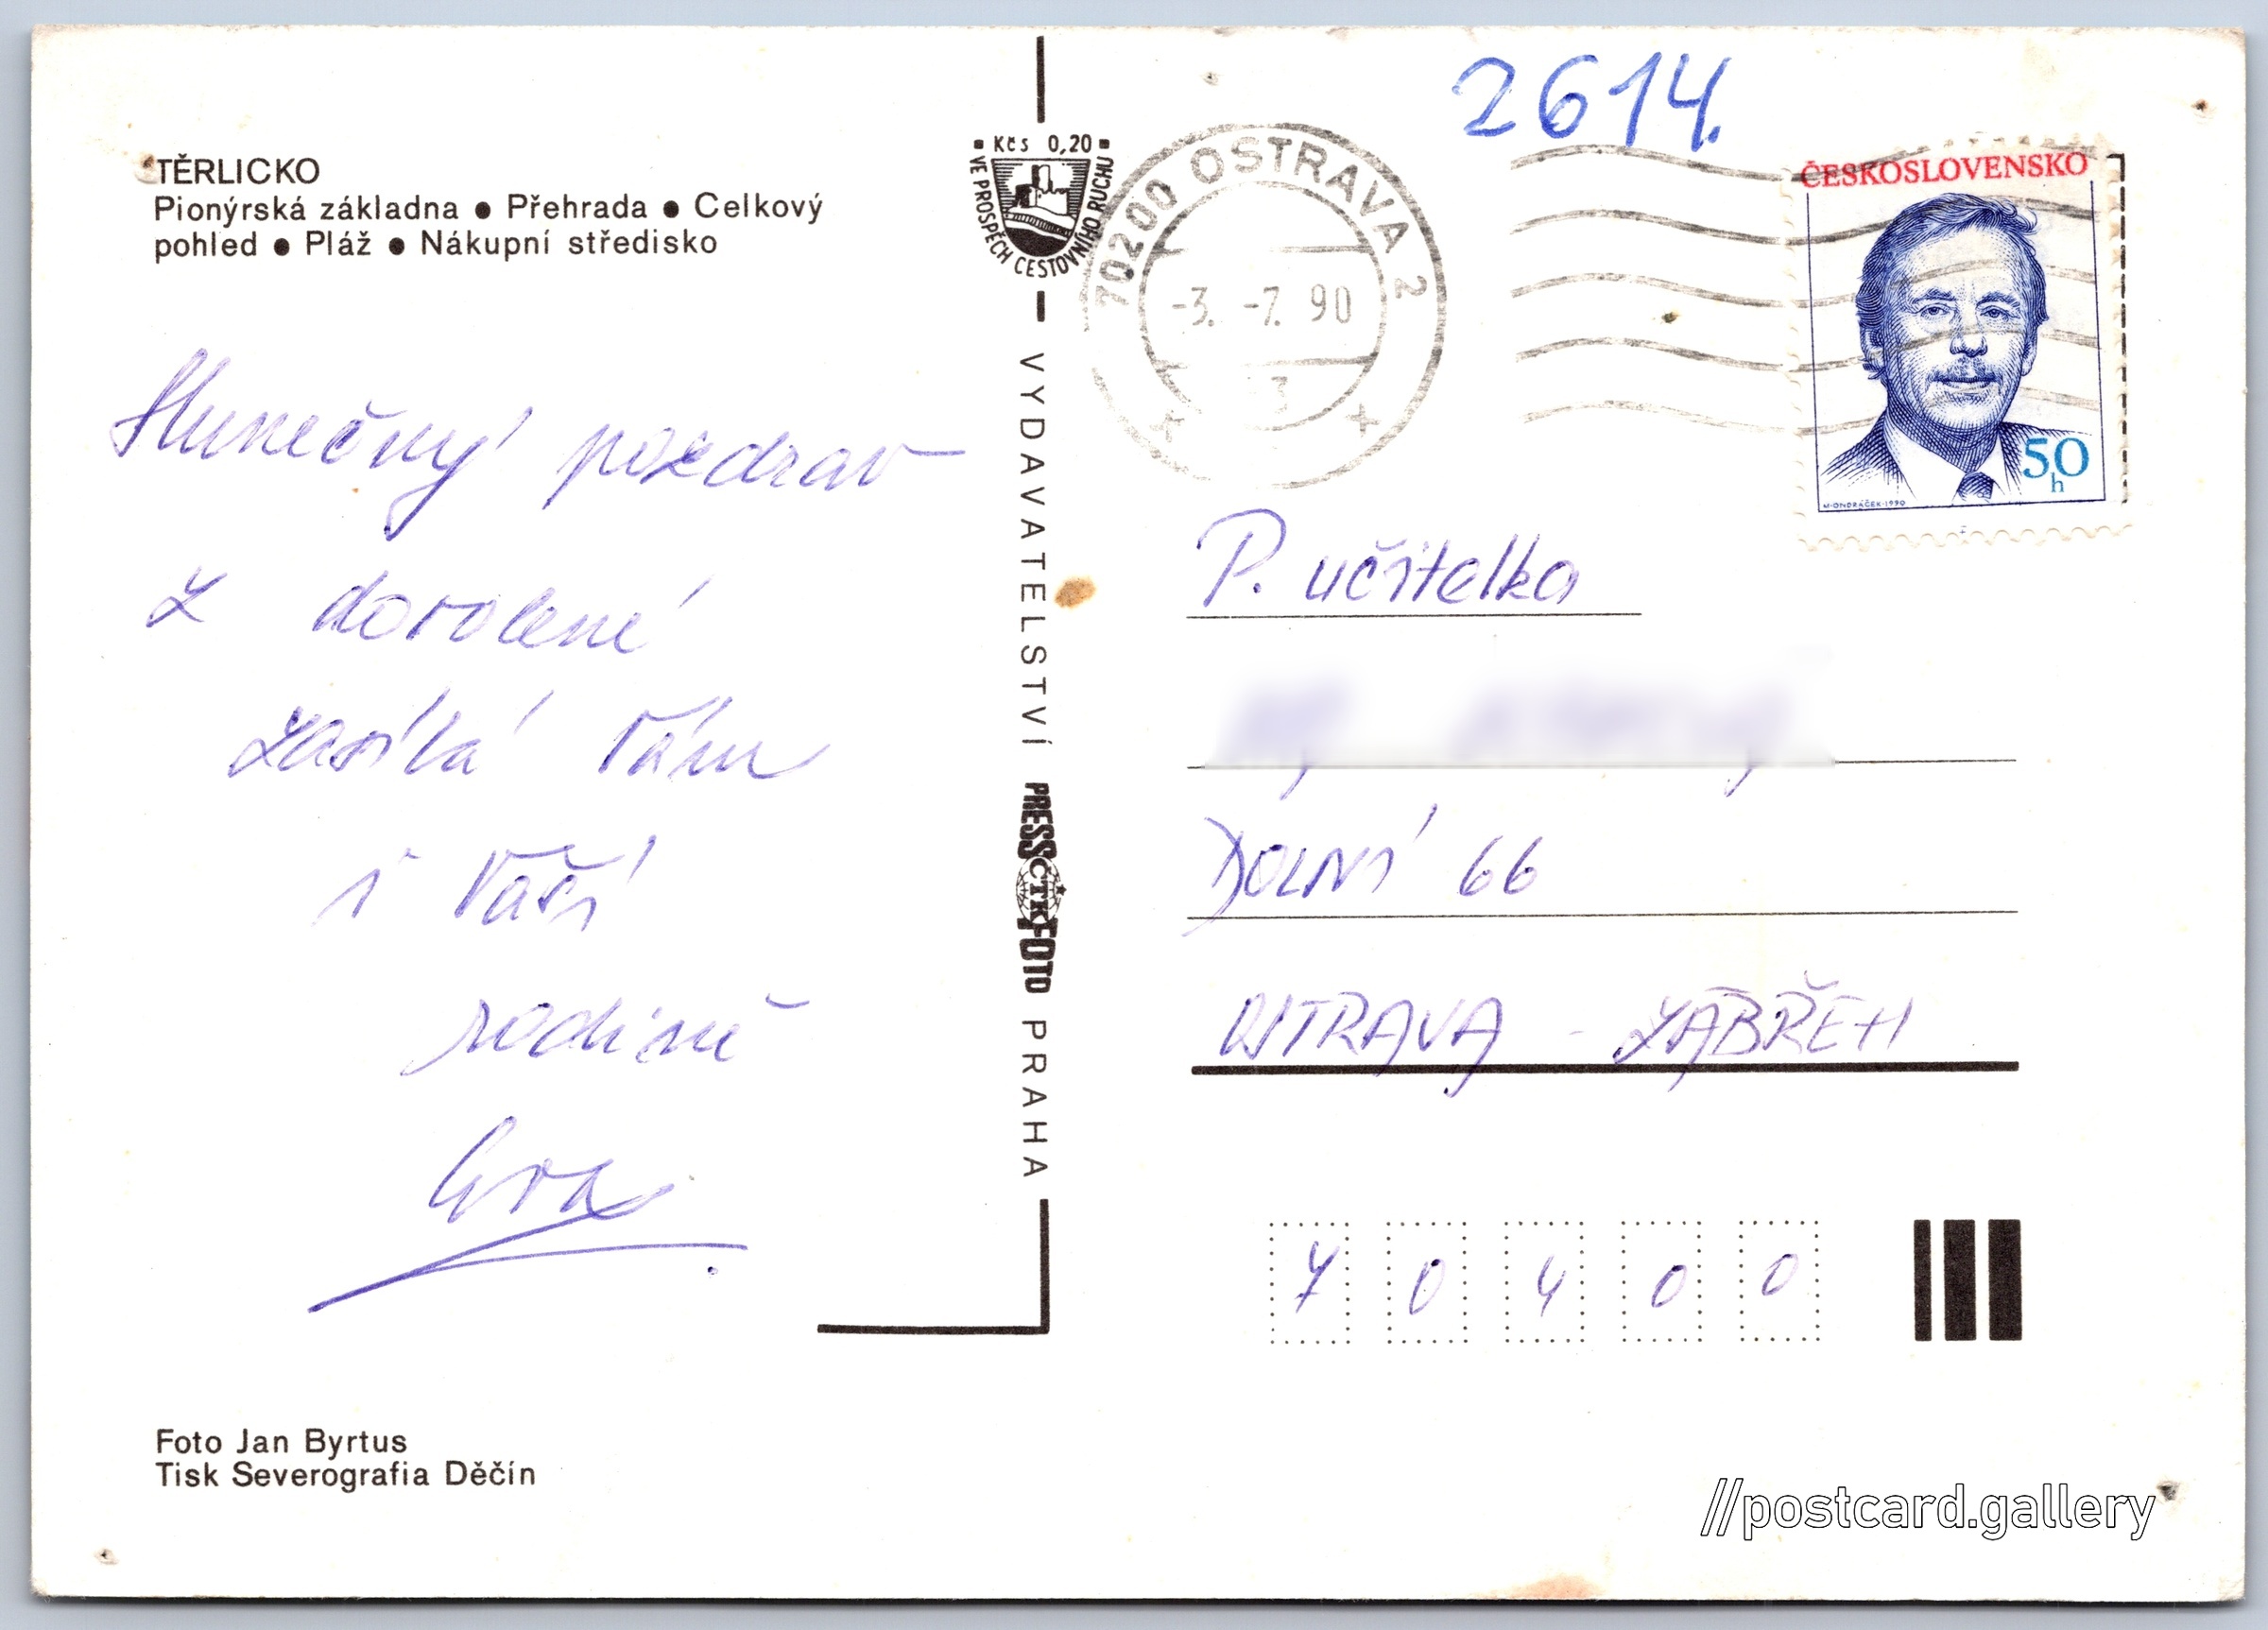 TĚRLICKO
Pionýrská základna ● Přehrada ● Celkový
pohled ● Pláž ● Nákupní středisko
Slunečný pozdrav
z dovolené
zasílá Vám
i Vaší
rodině
Iva
Foto Jan Byrtus
Tisk Severografia Děčín
Kčs 0,20
VE PROSPĚCH CESTOVNÍHO RUCHU
VYDAVATELSTVÍ PRESSFOTO PRAHA
ČTK
2614.
70200 OSTRAVA 2
-3. -7. 90
3
ČESKOSLOVENSKO
50
h
M·ONDRÁČEK·1990
P. učitelka
DOLNÍ 66
OSTRAVA - ZÁBŘEH
70400
//postcard.gallery